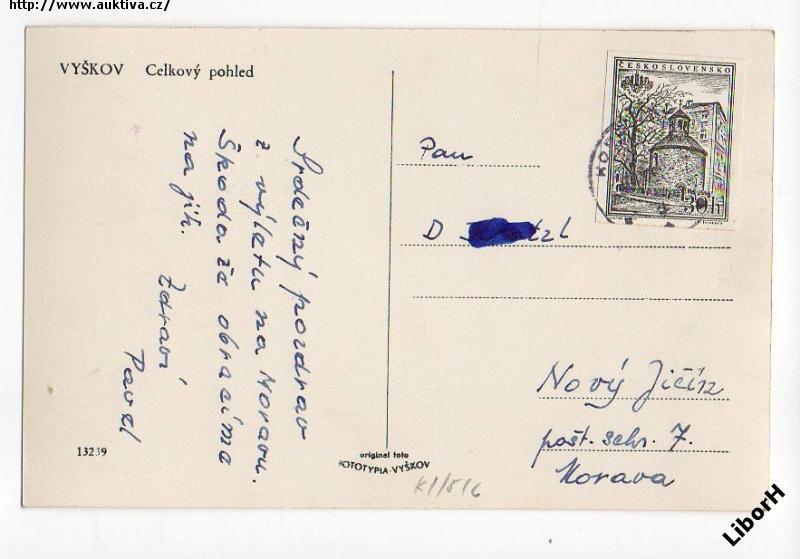 http://www.auktiva.cz/
VYŠKOV Celkový pohled
Srdečný pozdrav
z výletu na Moravu.
Škoda že obracíme
na jih.
Zdraví
Pavel
13239
original foto
FOTOTYPIA-VYŠKOV
K1/816
ČESKOSLOVENSKO
30 h
Pan
D
Nový Jičín
pošt. schr. 7.
Morava
LiborH